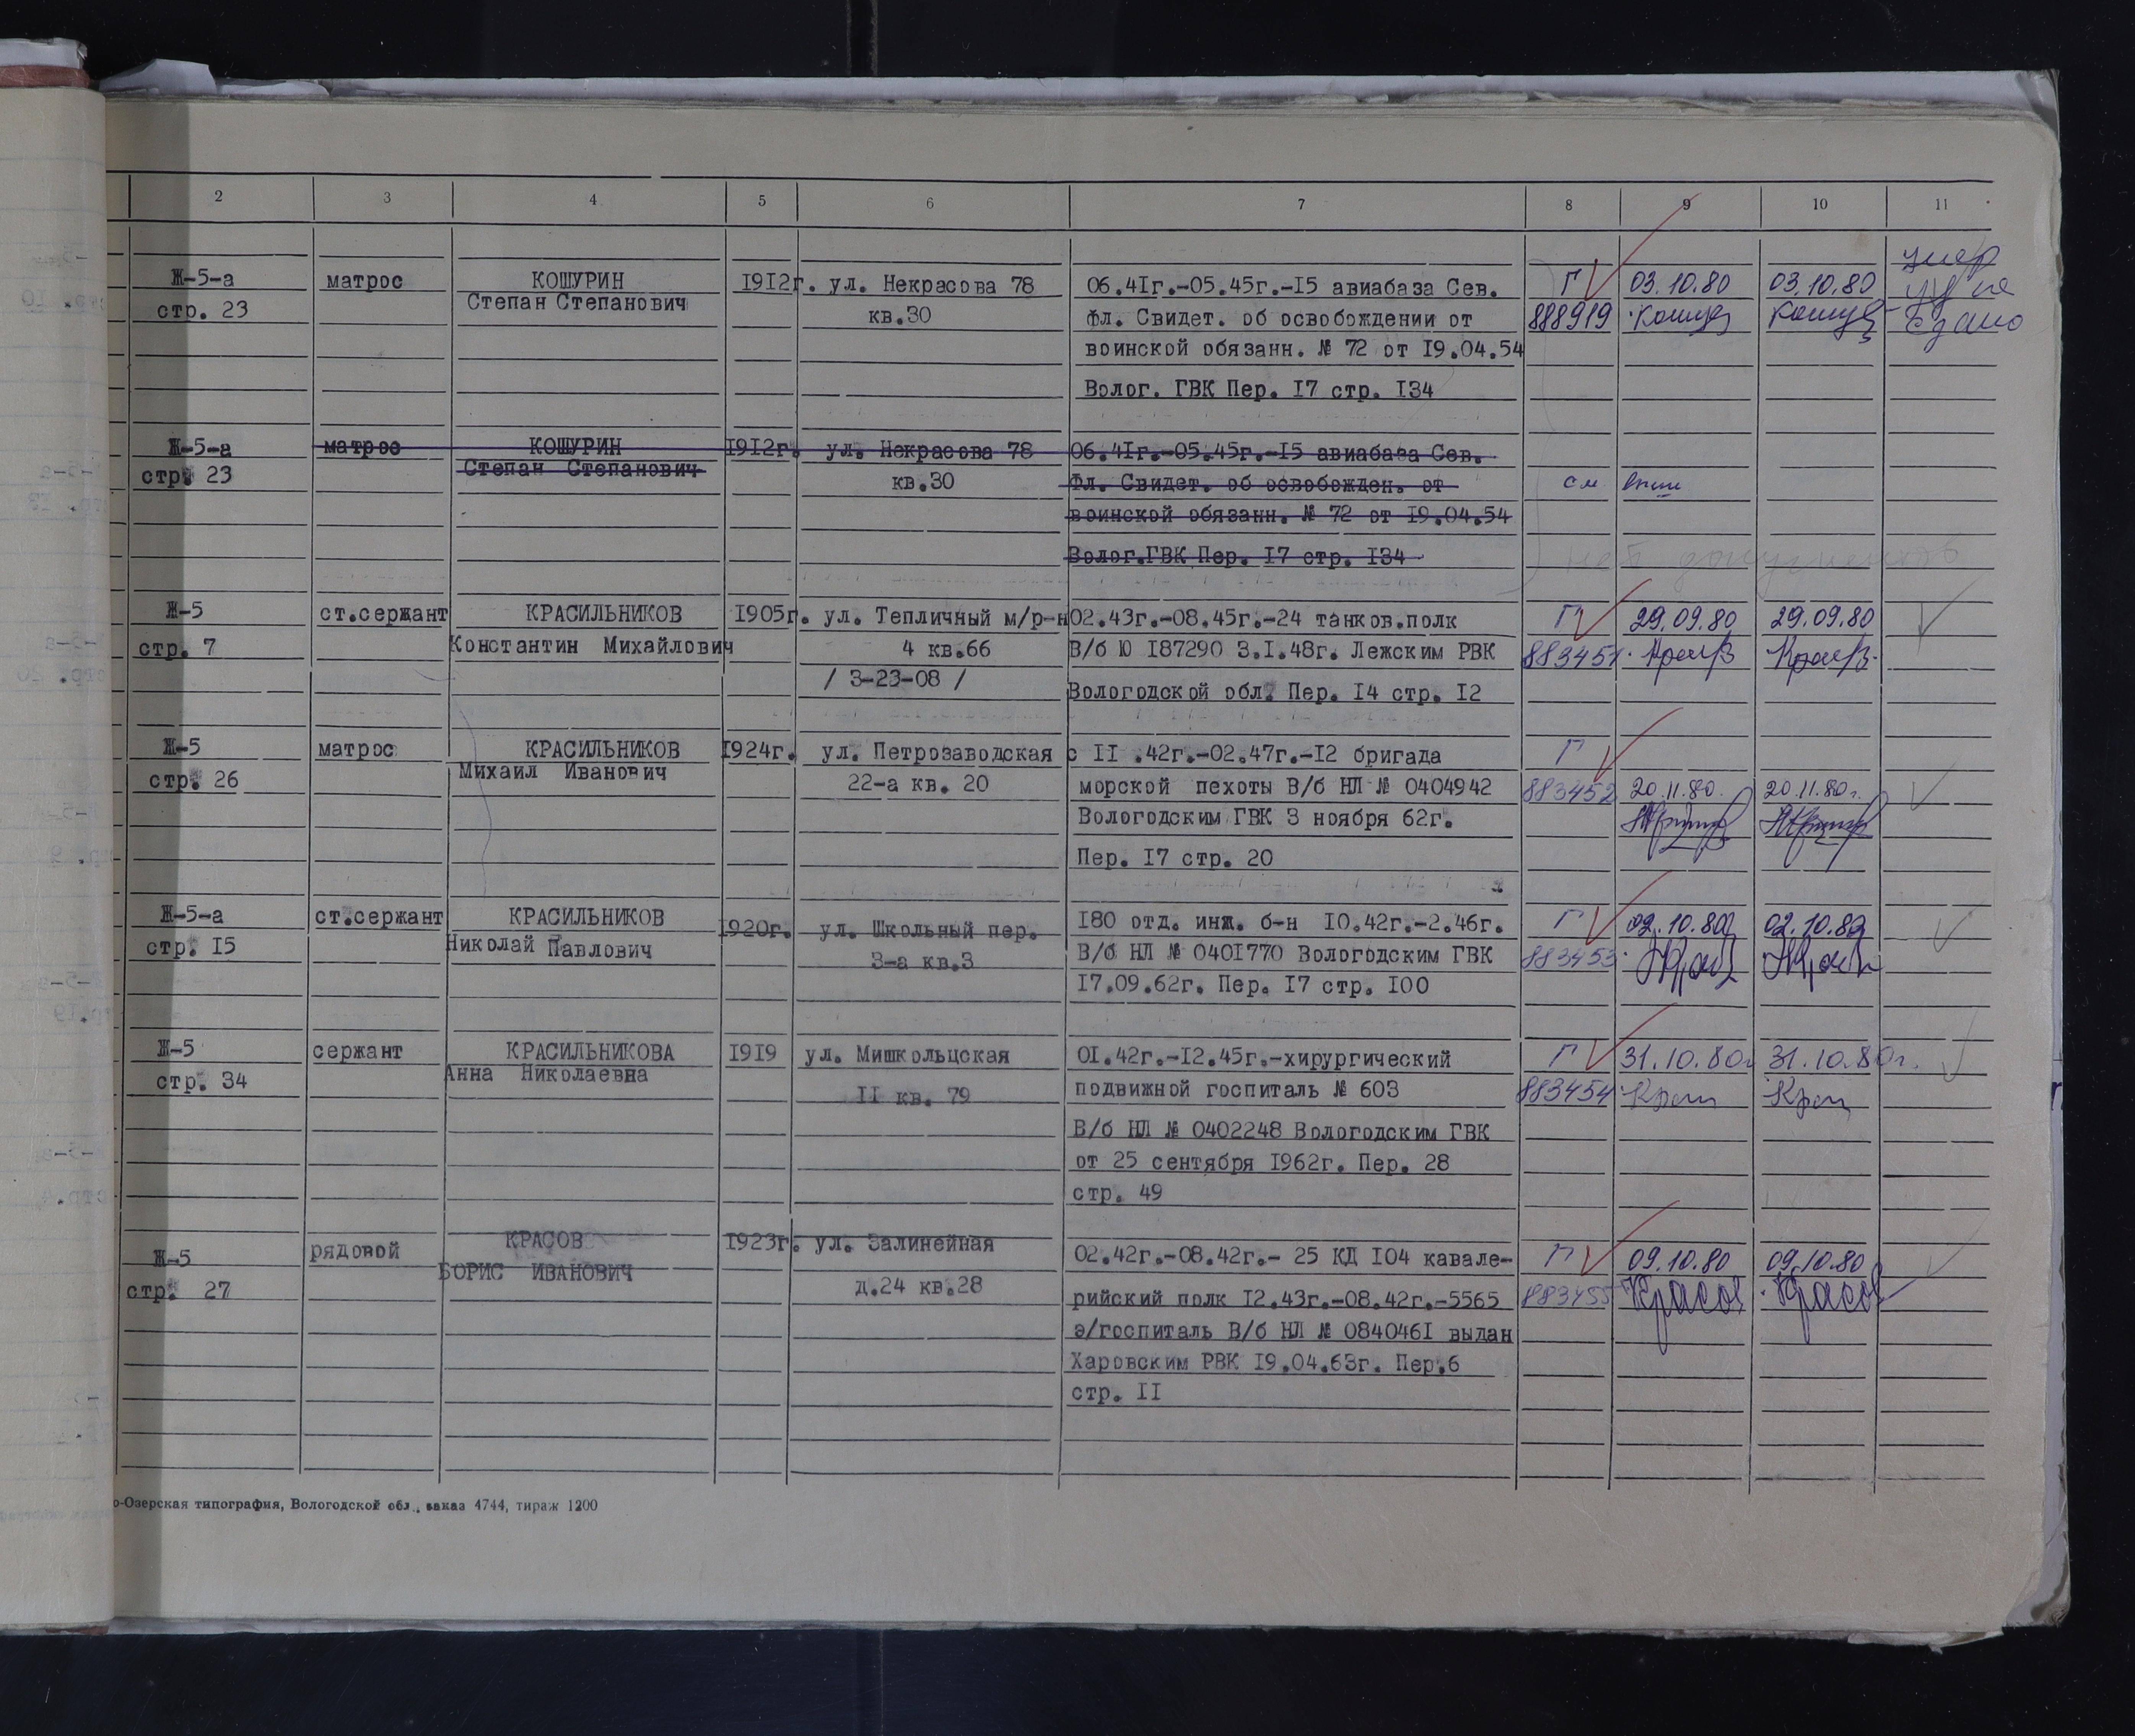 2 3 4 5 6 7 8 9 10 11
Ж-5-а матрос КОШУРИН 1912г. ул. Некрасова 78 06.41г.-05.45г.-15 авиабаза Сев. Г 03.10.80 03.10.80 умер
стр. 23 Степан Степанович кв.30 Фл. Свидет. об освобождении от 888919
воинской обязанн. № 72 от 19.04.54
Волог. ГВК Пер. 17 стр. 134
Ж-5-а матрос КОШУРИН 1912г. ул. Некрасова 78 06.41г.-05.45г.-15 авиабаза Сев.
стр. 23 Степан Степанович кв.30 Фл. Свидет. об освобожден. от см выше
воинской обязанн. № 72 от 19.04.54
Волог.ГВК Пер. 17 стр. 134 нет документов
Ж-5 ст.сержант КРАСИЛЬНИКОВ 1905г. ул. Тепличный м/р-н 02.43г.-08.45г.-24 танков.полк Г 29.09.80 29.09.80
стр. 7 Константин Михайлович 4 кв.66 В/б Ю 187290 3.1.48г. Лежским РВК 883451
/ 3-23-08 / Вологодской обл. Пер. 14 стр. 12
Ж-5 матрос КРАСИЛЬНИКОВ 1924г. ул. Петрозаводская с II .42г.-02.47г.-12 бригада Г
стр. 26 Михаил Иванович 22-а кв. 20 морской пехоты В/б НЛ № 0404942 883452 20.11.80. 20.11.80г.
Вологодским ГВК 3 ноября 62г.
Пер. 17 стр. 20
Ж-5-а ст.сержант КРАСИЛЬНИКОВ 1920г. ул. Школьный пер. 180 отд. инж. б-н 10.42г.-2.46г. Г 02.10.80 02.10.80
стр. 15 Николай Павлович 3-а кв.3 В/б НЛ № 0401770 Вологодским ГВК 883453
17.09.62г. Пер. 17 стр. 100
Ж-5 сержант КРАСИЛЬНИКОВА 1919 ул. Мишкольцская 01.42г.-12.45г.-хирургический Г 31.10.80г 31.10.80г.
стр. 34 Анна Николаевна II кв. 79 подвижной госпиталь № 603 883454
В/б НЛ № 0402248 Вологодским ГВК
от 25 сентября 1962г. Пер. 28
стр. 49
Ж-5 рядовой КРАСОВ 1923г. ул. Залинейная 02.42г.-08.42г.- 25 КД 104 кавале- Г 09.10.80 09.10.80
стр. 27 БОРИС ИВАНОВИЧ д.24 кв.28 рийский полк 12.43г.-08.42г.-5565 883455 Красов Красов
э/госпиталь В/б НЛ № 0840461 выдан
Харовским РВК 19.04.63г. Пер.6
стр. II
о-Озерская типография, Вологодской обл., заказ 4744, тираж 1200